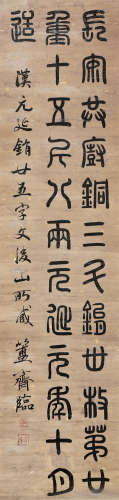 長安共廚銅三斗鋗廿枚第廿
重十五斤八兩元延元年十月
造
漢元延鋗廿五字文後山所臧 簠齋臨